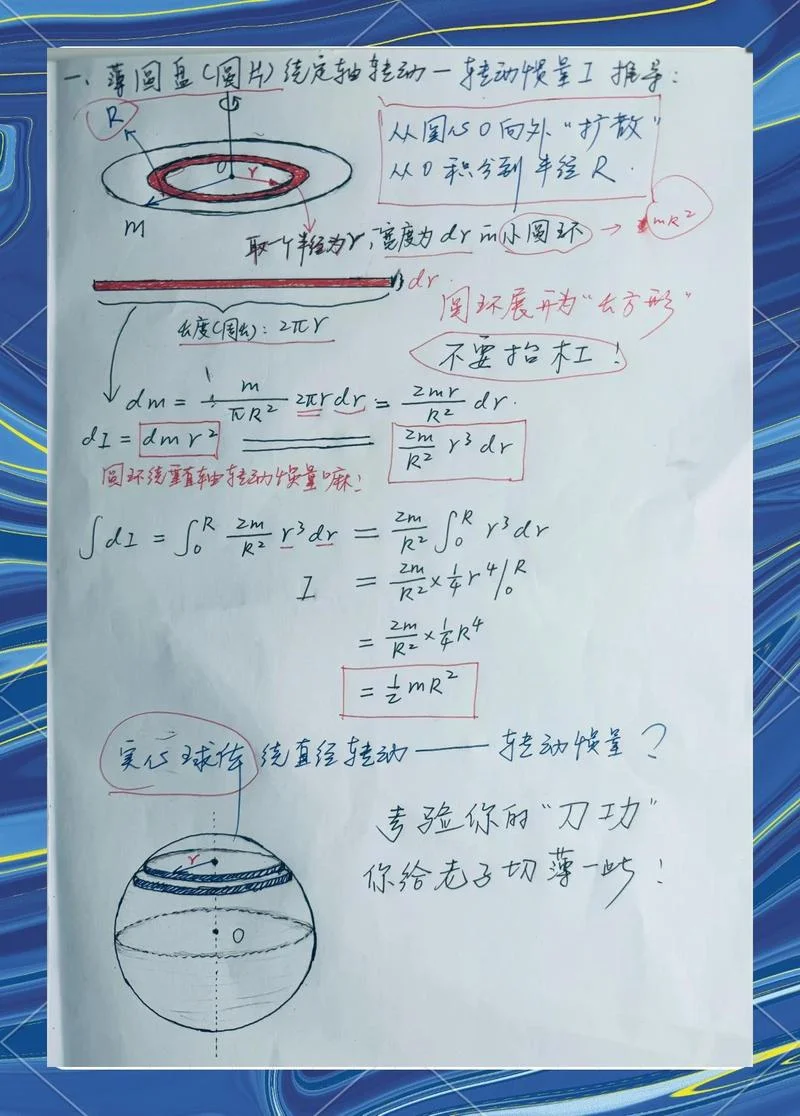 一、薄圆盘(圆片)绕定轴转动一转动惯量I 推导:
R
O
r
m
从圆心O向外"扩散"
从0积分到半径R.
取一个半径为r,宽度为dr的小圆环 → mR²
dr.
长度(周长): 2πr
圆环展开为"长方形"
不要抬杠!
dm = m/πR² 2πr dr = 2mr/R² dr.
dI = dm r² = 2m/R² r³ dr
圆环绕垂直轴转动惯量嘛!
∫dI = ∫₀ᴿ 2m/R² r³ dr = 2m/R² ∫₀ᴿ r³ dr
I = 2m/R² × 1/4 r⁴ |₀ᴿ
= 2m/R² × 1/4 R⁴
= 1/2 mR²
实心球体绕直径转动——转动惯量?
考验你的"刀功"
你给老子切薄一些!
r
O